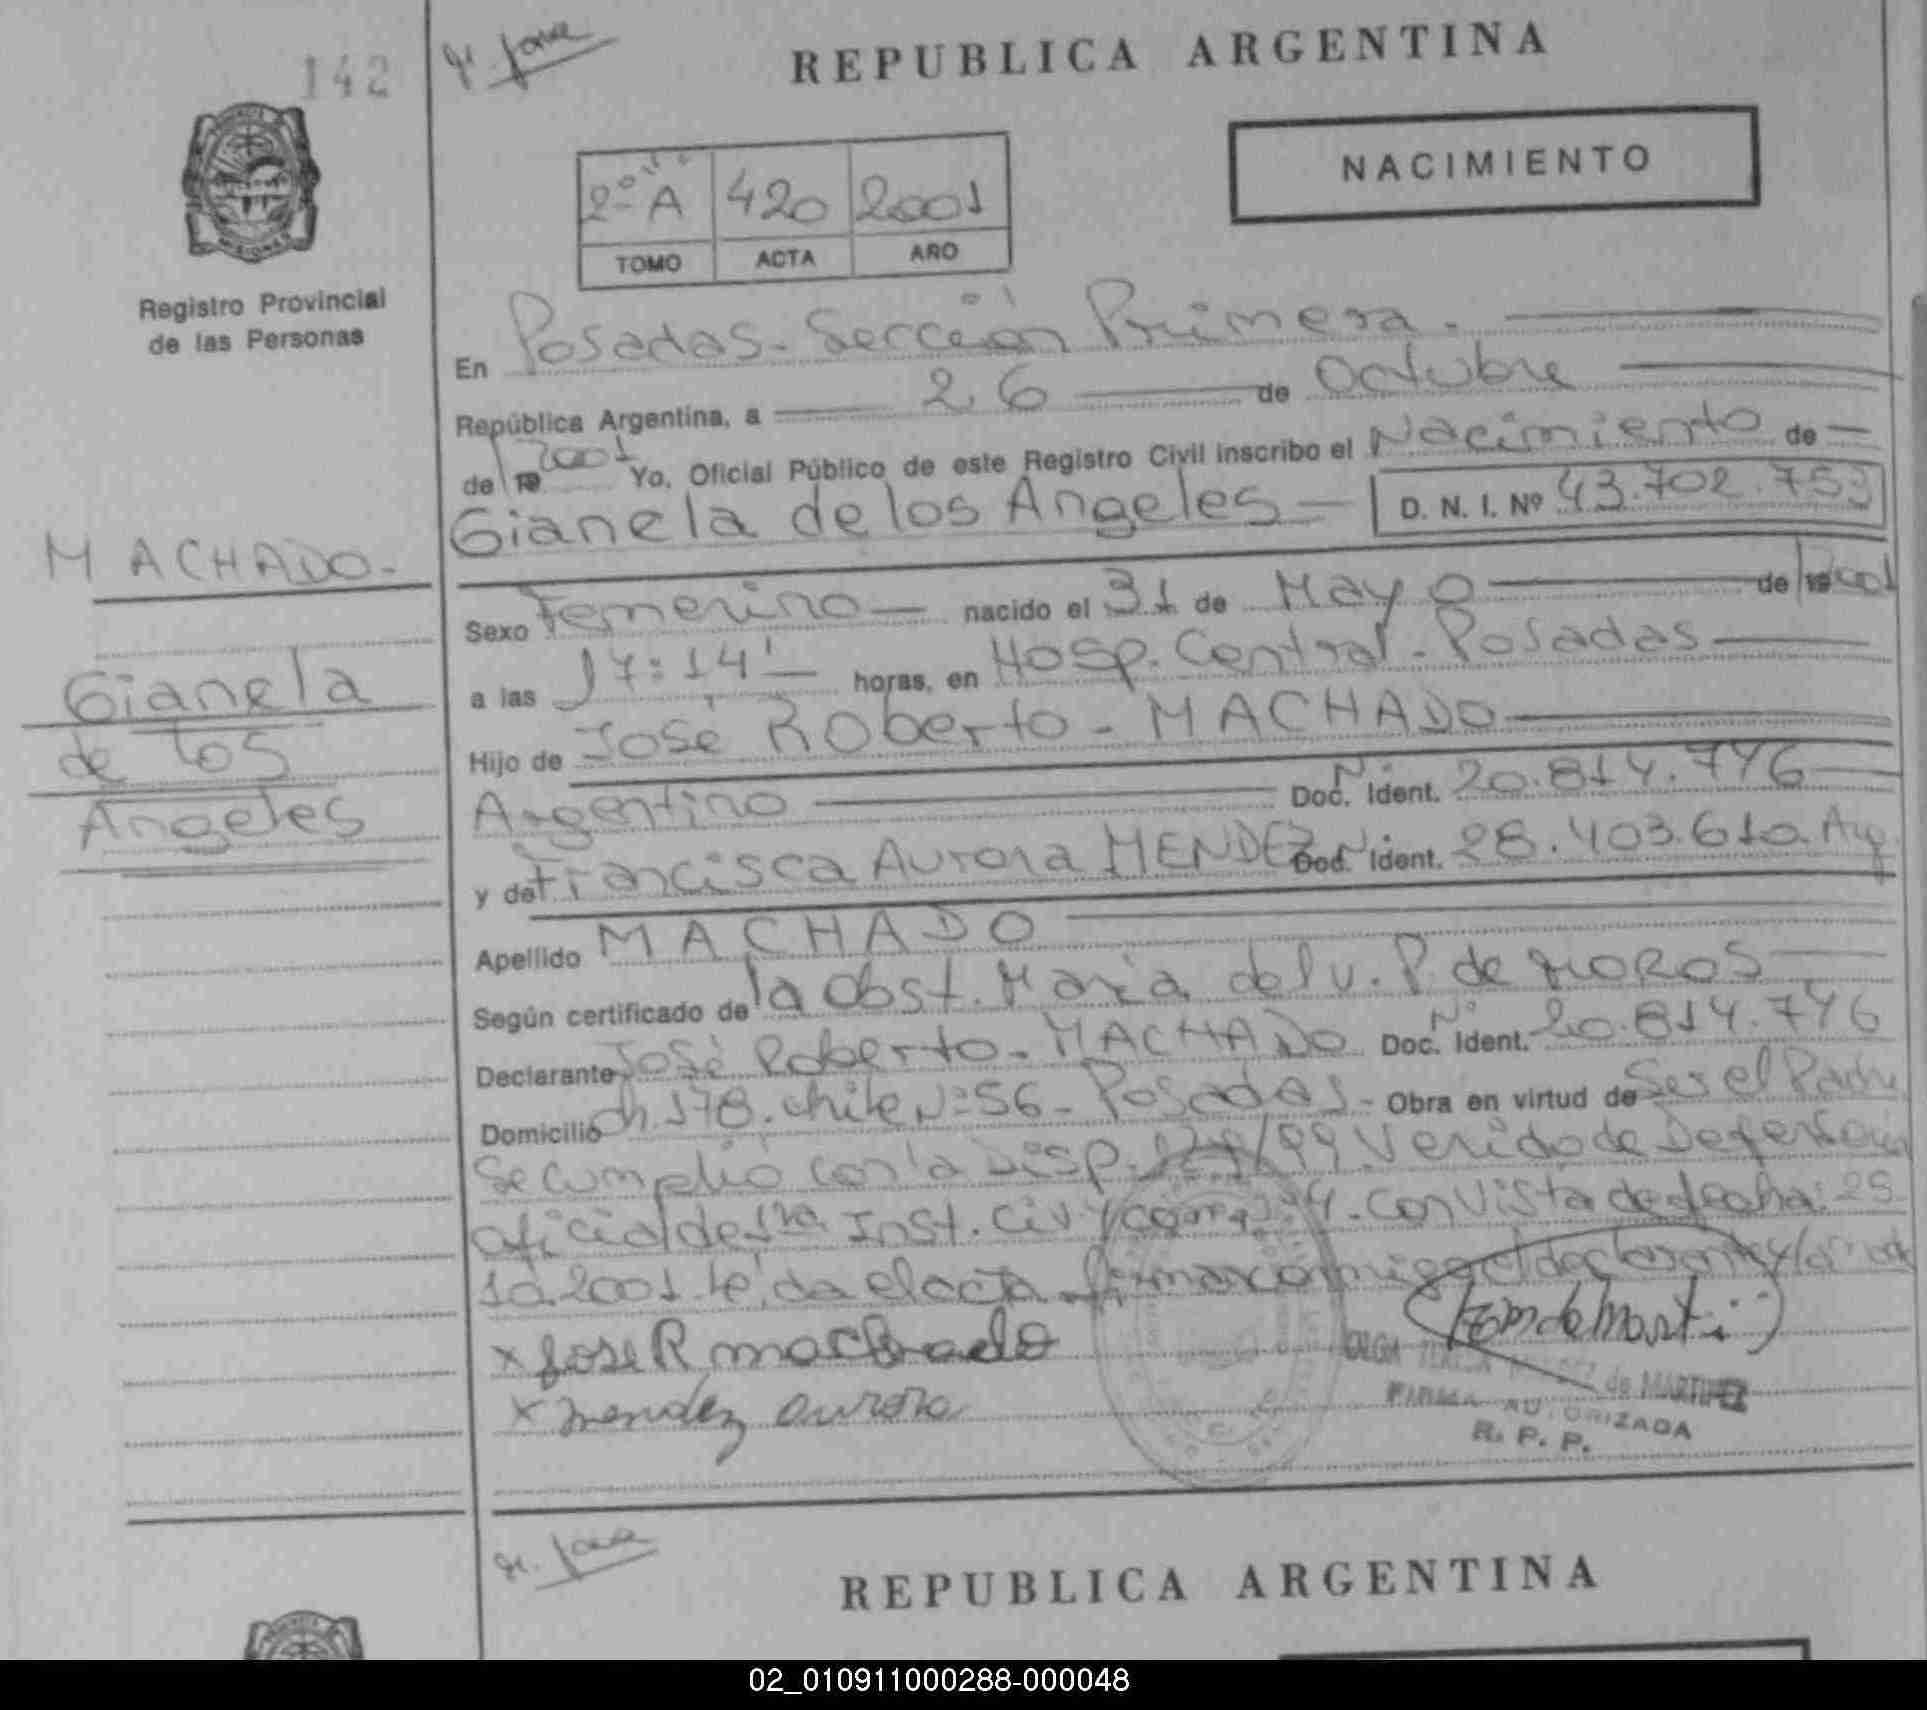 142
REPUBLICA ARGENTINA
NACIMIENTO
2º A 420 2001
TOMO ACTA AÑO
Registro Provincial
de las Personas
En Posadas - Sección Primera.
República Argentina, a 26 de Octubre
de 19 2001 Yo, Oficial Público de este Registro Civil inscribo el Nacimiento de
Gianela de los Angeles D. N. I. Nº 43.702.753
MACHADO -
Gianela
de los
Angeles
Sexo Femenino nacido el 31 de Mayo de 19 2001
a las 17:14' horas, en Hosp. Central - Posadas
Hijo de José Roberto - MACHADO
Argentino Doc. Ident. Nº 20.814.746
y de Francisca Aurora MENDEZ Doc. Ident. Nº 28.403.610. Arg
Apellido MACHADO
Según certificado de la obst. Maria del v. P. de MOROS
Declarante José Roberto - MACHADO Doc. Ident. Nº 20.814.746
Domicilio ch. 178. chile Nº 56 - Posadas - Obra en virtud de Ser el Padre
Se cumplió con la Disp. /99. Venido de Defensoria
oficial de 1ra Inst. Civ y com. Nº 4. con vista de fecha: 25
10.2001. Leida el acta firman conmigo el declarante y la madre
x Jose R machado
x mendez aurora
OLGA TERESA de MARTINEZ
FIRMA AUTORIZADA
R. P. P.
REPUBLICA ARGENTINA
02_010911000288-000048